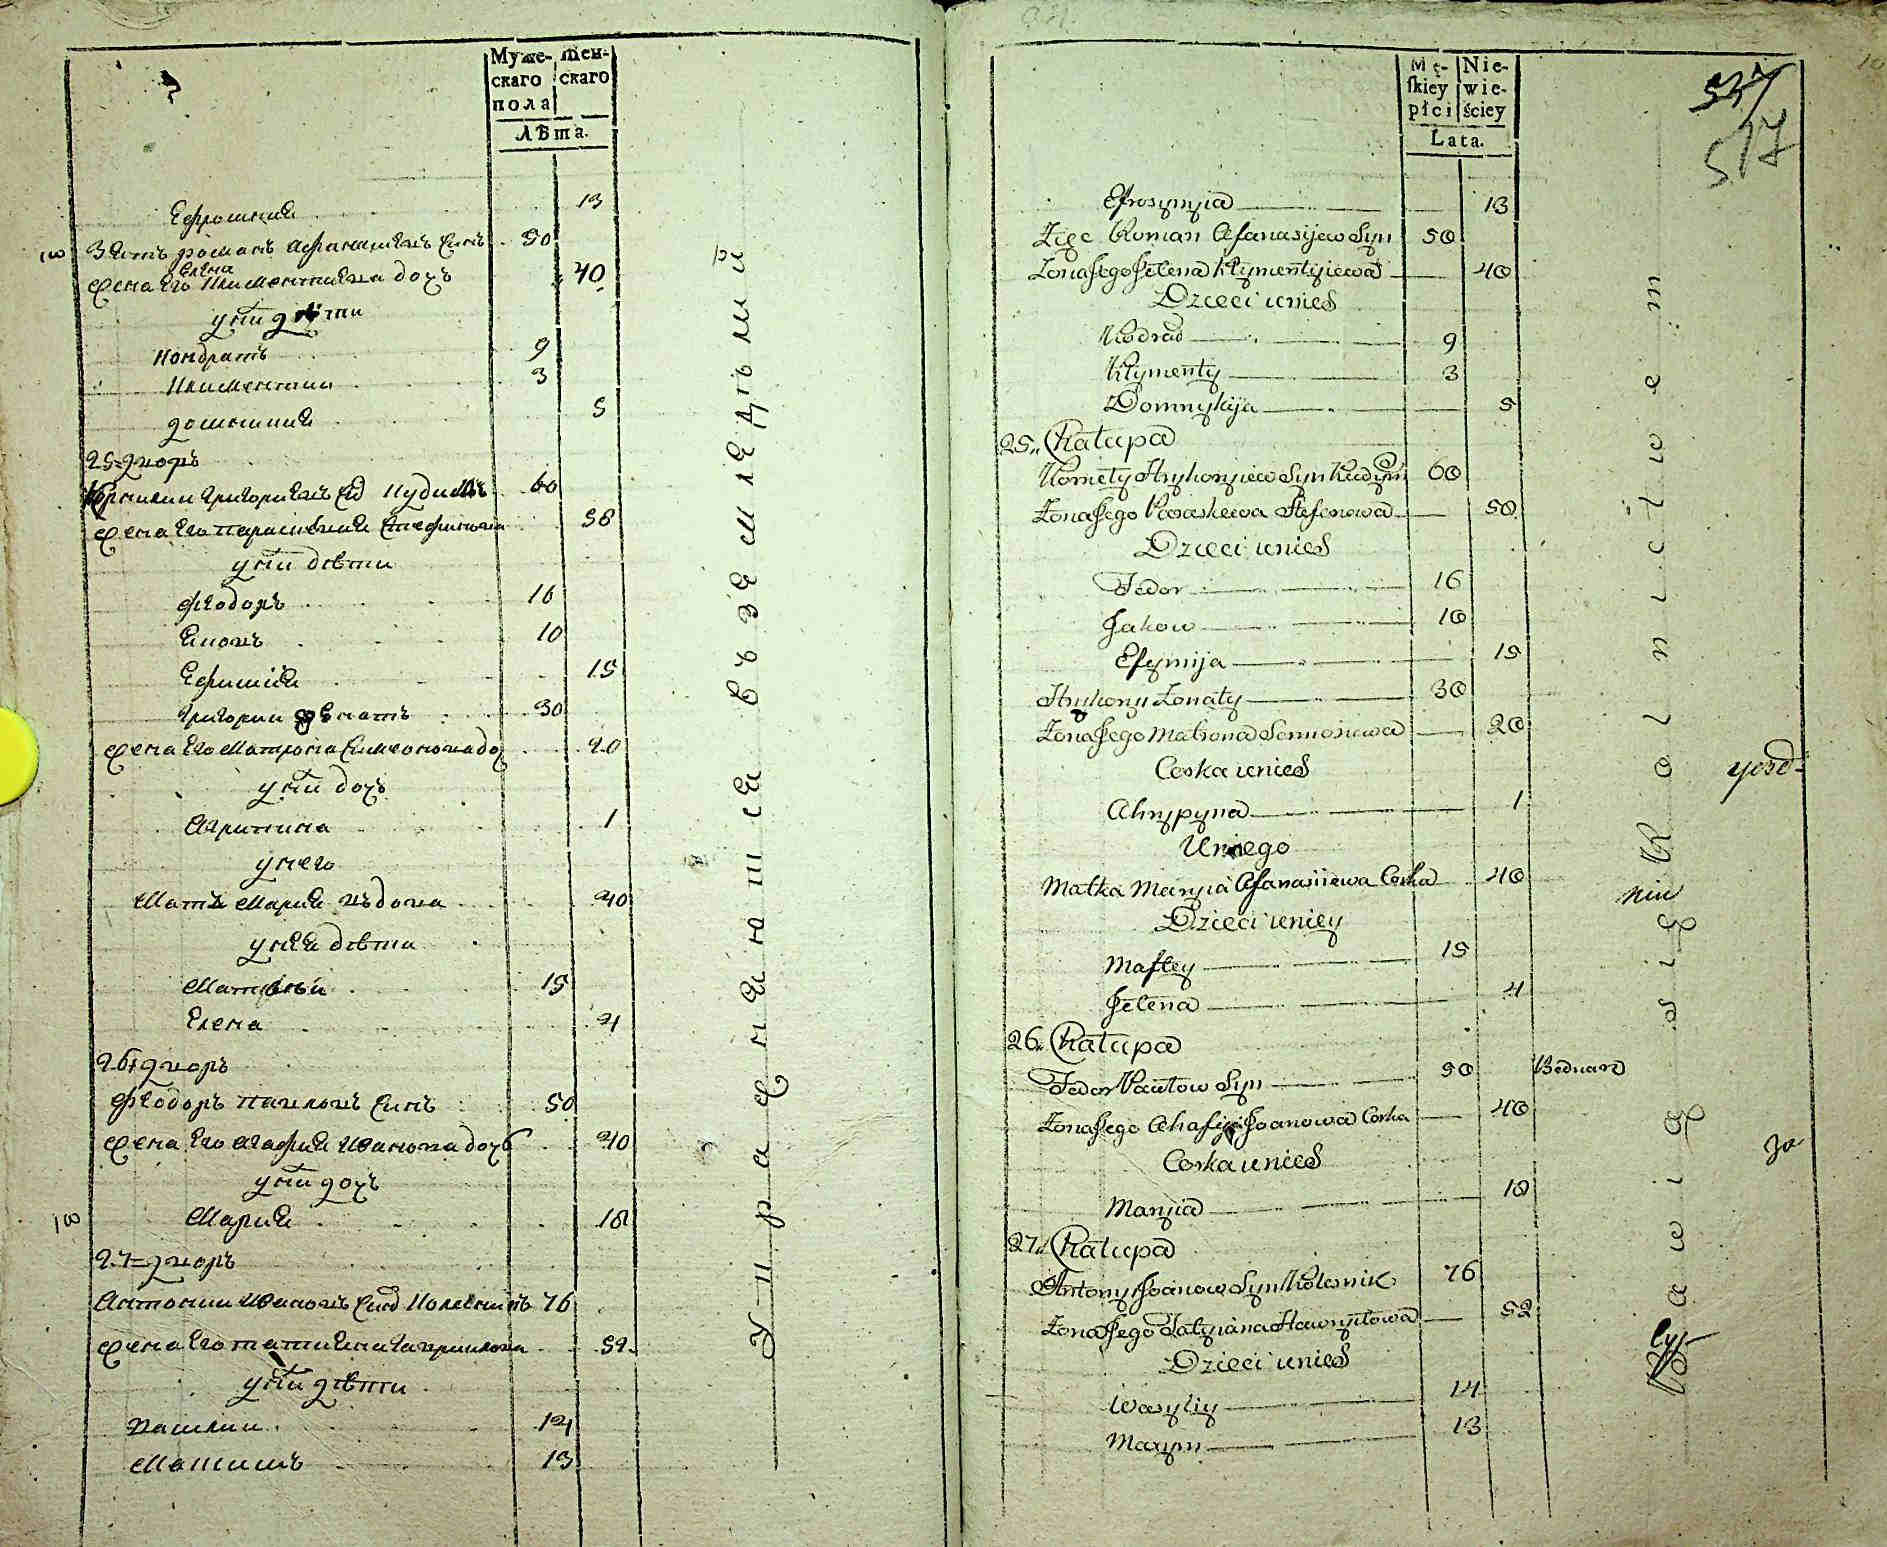 Муже- Жен-
скаго скаго
пола
Лѣта.
Ефросинія 13
Зять романъ Афанасиевъ Синъ 50
Елена
жена Его Климентиева дочъ 40
у них дѣти
Кондратъ 9
Климентии 3
домникия 5
25=дворъ
Корнилии Григориевъ Синъ Кудимъ 60
жена Его параскевия Стефанова 58
у них дѣти
Феодоръ 16
Яковъ 10
Ефимия 15
Григории женатъ 30
жена Его Матрона Симеонова до 20
у них дочъ
Агрипина 1
у него
Мать Мария вдова 40
у неи дѣти
Матвѣй 15
Елена 4
26=дворъ
Феодоръ павловъ Синъ 50
жена Его Агафия Иванова дочъ 40
у них дочъ
Мария 18
27=дворъ
Антонии Ивановъ Синъ Колесникъ 76
жена Его татияна Гаврилова 52
у них дѣти
Василии 14
Максимъ 13
Упражняются въ земледѣлїй
Mę- Nie-
skiey wie-
płci ściey
Lata.
517
Efrosynyia 13
Zięc Roman Afanasijew Syn 50
Zona Jego Jelena Klymentyiewa 40
Dzieci u nich
Kodrad 9
Klymenty 3
Domnykija 5
25. Chałupa
Kornety Hryhoryiew Syn Kudym 60
Zona Jego Paraskewa Stefonowa 58
Dzieci u nich
Fedor 16
Jakow 10
Efymija 15
Hryhory Zonaty 30
Zona Jego Matrona Semionowa 20
Corka u nich
Ahrypyna 1
U niego
Matka Maryia Afanasiiewa Corka 40
Dzieci u niey
Matfey 15
Jelena 4
26. Chałupa
Fedor Pawłow Syn 50 Bednarz
Zona Jego Ahafija Joanowa Corka 40
Corka u nich
Maryia 18
27. Chałupa
Antony Joanow Syn Kolesnik 76
Zona Jego Tatyiana Hawryłowa 52
Dzieci u nich
Wasyliy 14
Maxym 13
Bawią się Rolnictwem